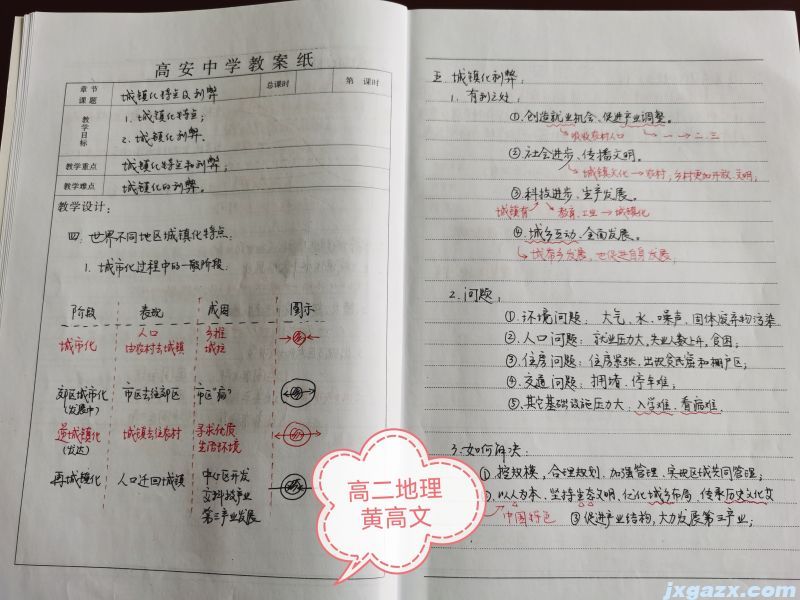 高安中学教案纸
章节课题 城镇化特点及利弊 总课时 第 课时
教学目标 1. 城镇化特点;
2. 城镇化利弊.
教学重点 城镇化特点和利弊;
教学难点 城镇化的利弊。
教学设计:
四. 世界不同地区城镇化特点:
1. 城市化过程中的一般阶段:
阶段 表现 成因 图示
城市化 人口由农村去城镇 乡推城拉
郊区城市化(发展中) 市区去往郊区 市区"病"
逆城镇化(发达) 城镇去往农村 寻求优质生活环境
再城镇化 人口迁回城镇 中心区开发 高科技产业 第三产业发展
五. 城镇化利弊:
1. 有利之处:
①.创造就业机会、促进产业调整。
吸收农村人口 一→二.三
②.社会进步、传播文明。
城镇文化→农村,乡村更加开放.文明,
③.科技进步、生产发展。
城镇有 教育.工业→城镇化
④.城乡互动、全面发展。
城带乡发展,也促进自身发展,
2. 问题:
①.环境问题: 大气、水、噪声、固体废弃物污染
②.人口问题: 就业压力大,失业人数上升,贫困;
③.住房问题: 住房紧张,出现贫民窟和棚户区;
④.交通问题: 拥堵、停车难;
⑤.其它基础设施压力大、入学难、看病难.
3. 如何解决:
①.控规模,合理规划,加强管理,实现区域共同管理;
以人为本、坚持生态文明,优化城乡布局、传承历史文化
中国特色 ③促进产业结构,大力发展第三产业;
高二地理
黄高文
jxgazx.com